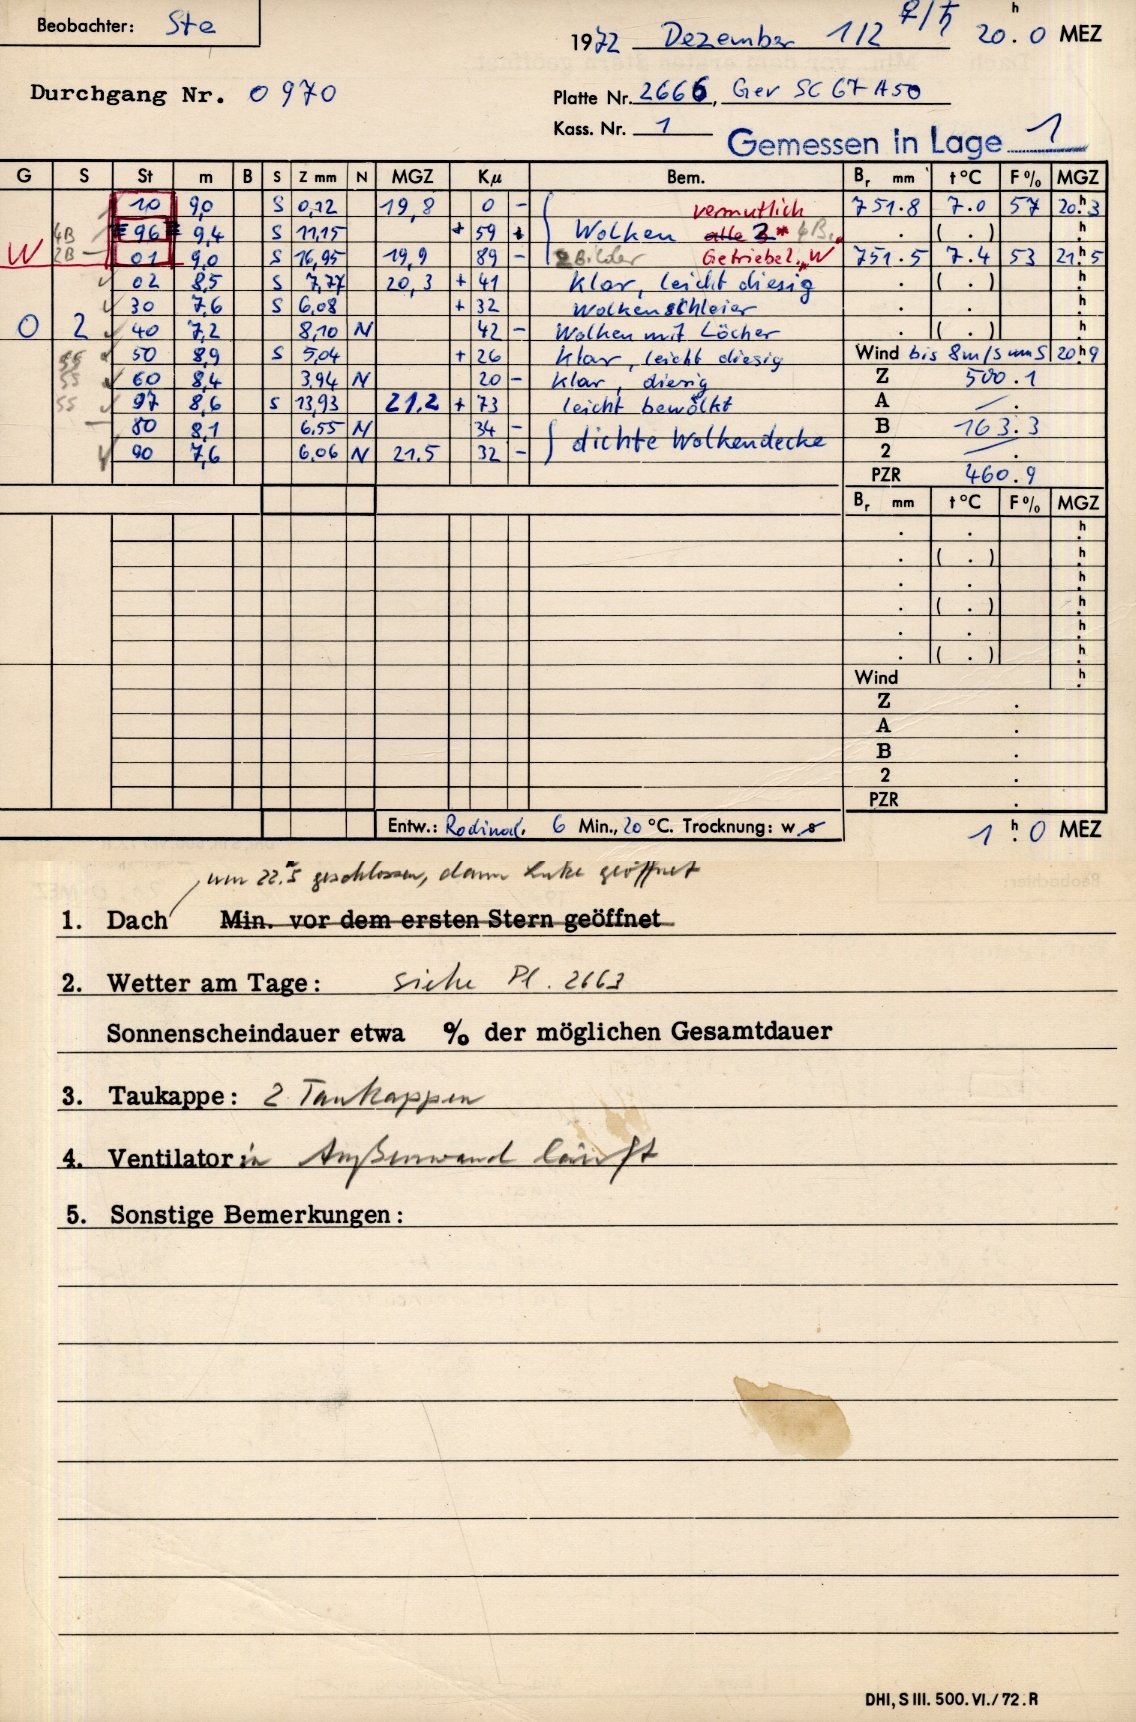 Beobachter: Ste
1972 Dezember 1/2 ♀/♄ 20.ʰ0 MEZ
Durchgang Nr. 0970
Platte Nr. 2666, Gev SC 67 A 50
Kass. Nr. 1
Gemessen in Lage 1
G S St m B S Z mm N MGZ Kμ Bem. Bᵣ mm t °C F % MGZ
10 9,0 S 0,12 19,8 0 – vermutlich 751.8 7.0 57 20.ʰ3
4B 96 9,4 S 11,15 + 59 Wolken alle 2 * 4B. ( . ) h
W 2B – 01 9,0 S 16,95 19,9 89 – 2 Bilder Getriebe „W 751.5 7.4 53 21.ʰ5
02 8,5 S 7,77 20,3 + 41 klar, leicht diesig ( . ) h
30 7,6 S 6,08 + 32 Wolkenschleier h
0 2 40 7,2 8,10 N 42 – Wolken mit Löcher ( . ) h
55 50 8,9 S 5,04 + 26 klar, leicht diesig Wind bis 8m/s um S 20ʰ9
55 60 8,4 3,94 N 20 – klar, diesig Z 500.1
55 97 8,6 S 13,93 21.2 + 73 leicht bewölkt A — .
80 8,1 6,55 N 34 – dichte Wolkendecke B 163.3
90 7,6 6,06 N 21.5 32 – 2 — .
PZR 460.9
Bᵣ mm t °C F % MGZ
. . h
. ( . ) h
. . h
. ( . ) h
. . h
. ( . ) h
Wind h
Z .
A .
B .
2 .
PZR .
Entw.: Rodinal, 6 Min., 20 °C. Trocknung: w s 1.ʰ0 MEZ
um 22.ʰ5 geschlossen, dann Luke geöffnet
1. Dach Min. vor dem ersten Stern geöffnet
2. Wetter am Tage: siehe Pl. 2663
Sonnenscheindauer etwa % der möglichen Gesamtdauer
3. Taukappe: 2 Taukappen
4. Ventilator: in Außenwand läuft
5. Sonstige Bemerkungen:
DHI, S III. 500. VI./72. R